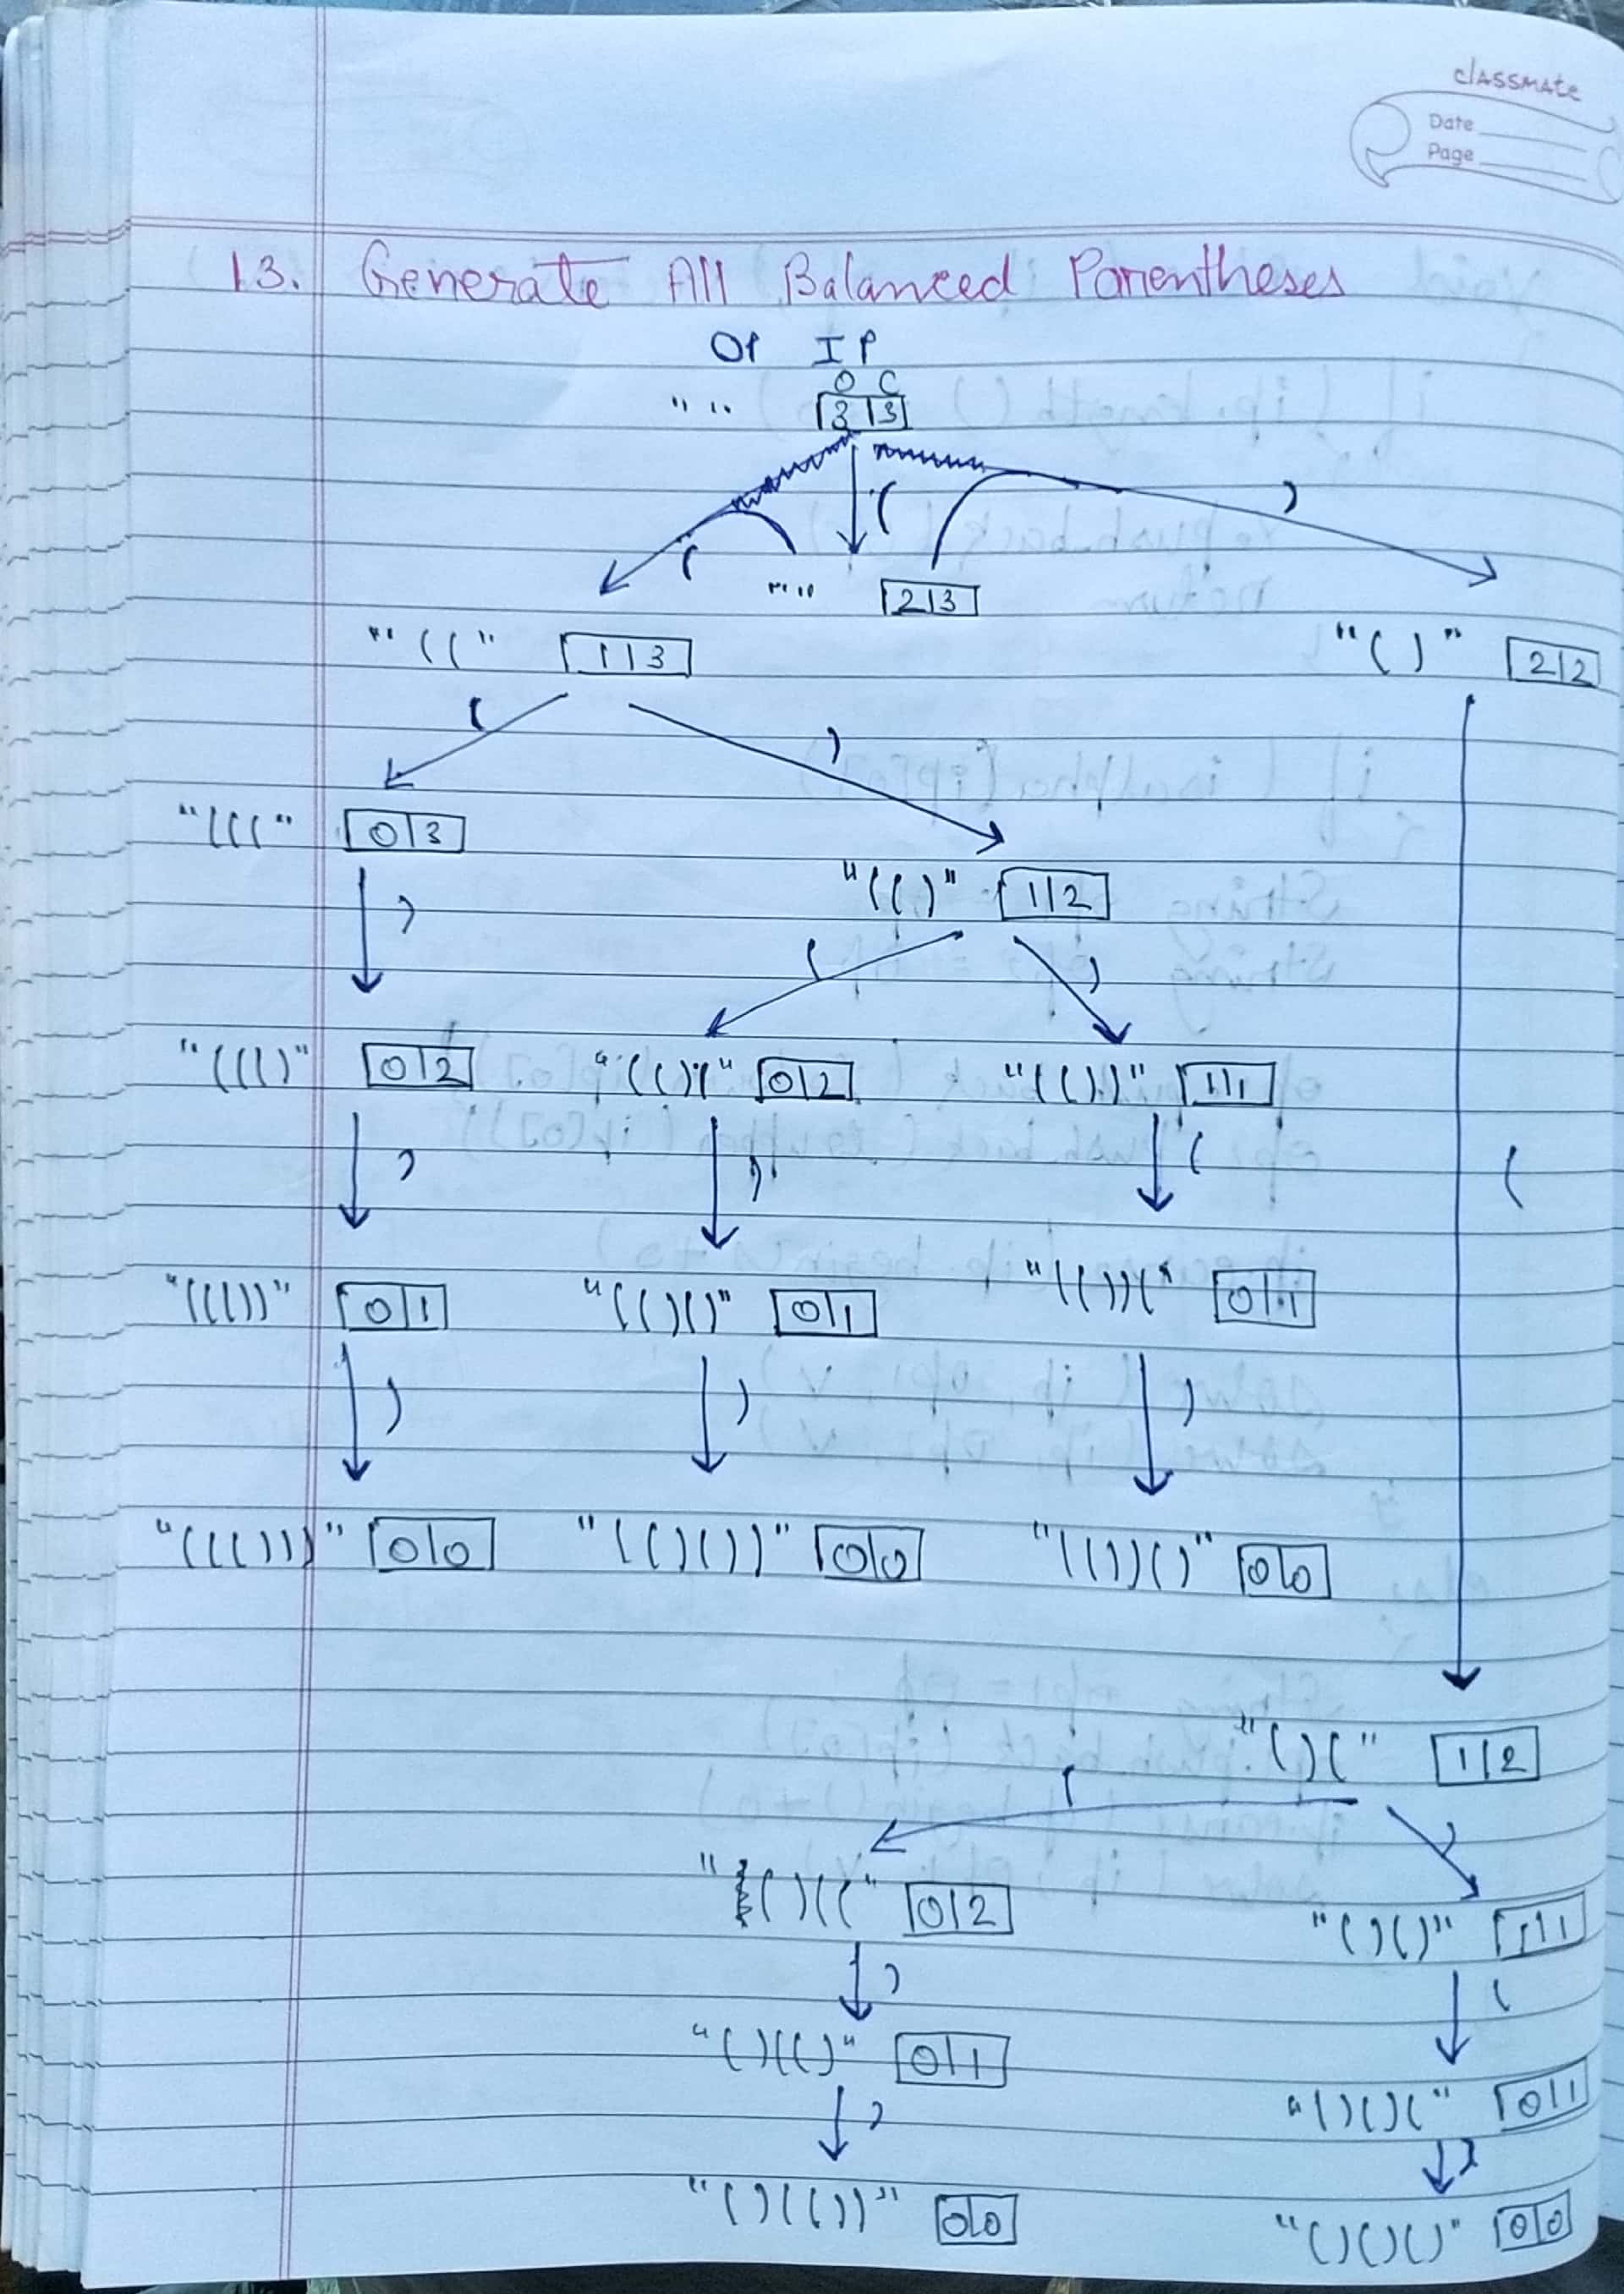 classmate
Date
Page
13. Generate All Balanced Parentheses
OP IP
O C
" " 3|3
( ( )
" " 2|3
"((" 1|3 "()" 2|2
( )
"(((" 0|3
"(()" 1|2
)
( )
"((()" 0|2 "(()(" 0|2 "(())" 1|1
) ) ( (
"((())" 0|1 "(()()" 0|1 "(())(" 0|1
) ) )
"((()))" 0|0 "(()())" 0|0 "(())()" 0|0
"()(" 1|2
( )
"()((" 0|2
"()()" 1|1
) (
"()(()" 0|1
"()()(" 0|1
) )
"()(())" 0|0
"()()()" 0|0